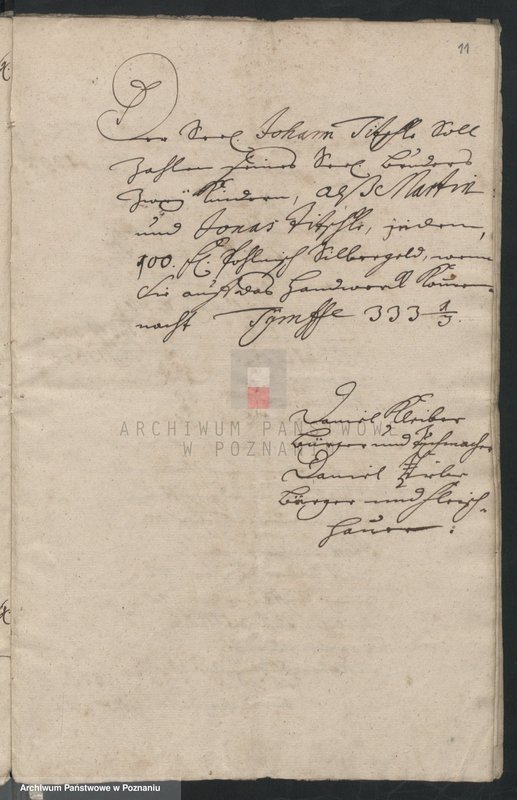 11
Der Seel. Johann Titzkle Soll
Zahlen seines Seel. Bruders
zwey Kindern, alß Martin
und Jonas Titzkle, jedem,
100. fl. Pohlnisch Silbergeld, wenn
Sie auff das Handwerck
macht Tÿmffe 333 1/3.
Daniel Kleiber
Bürger und Tuchmacher
Daniel
Bürger und Fleisch-
hauer
ARCHIWUM PAŃSTWOWE
W POZNANIU
Archiwum Państwowe w Poznaniu